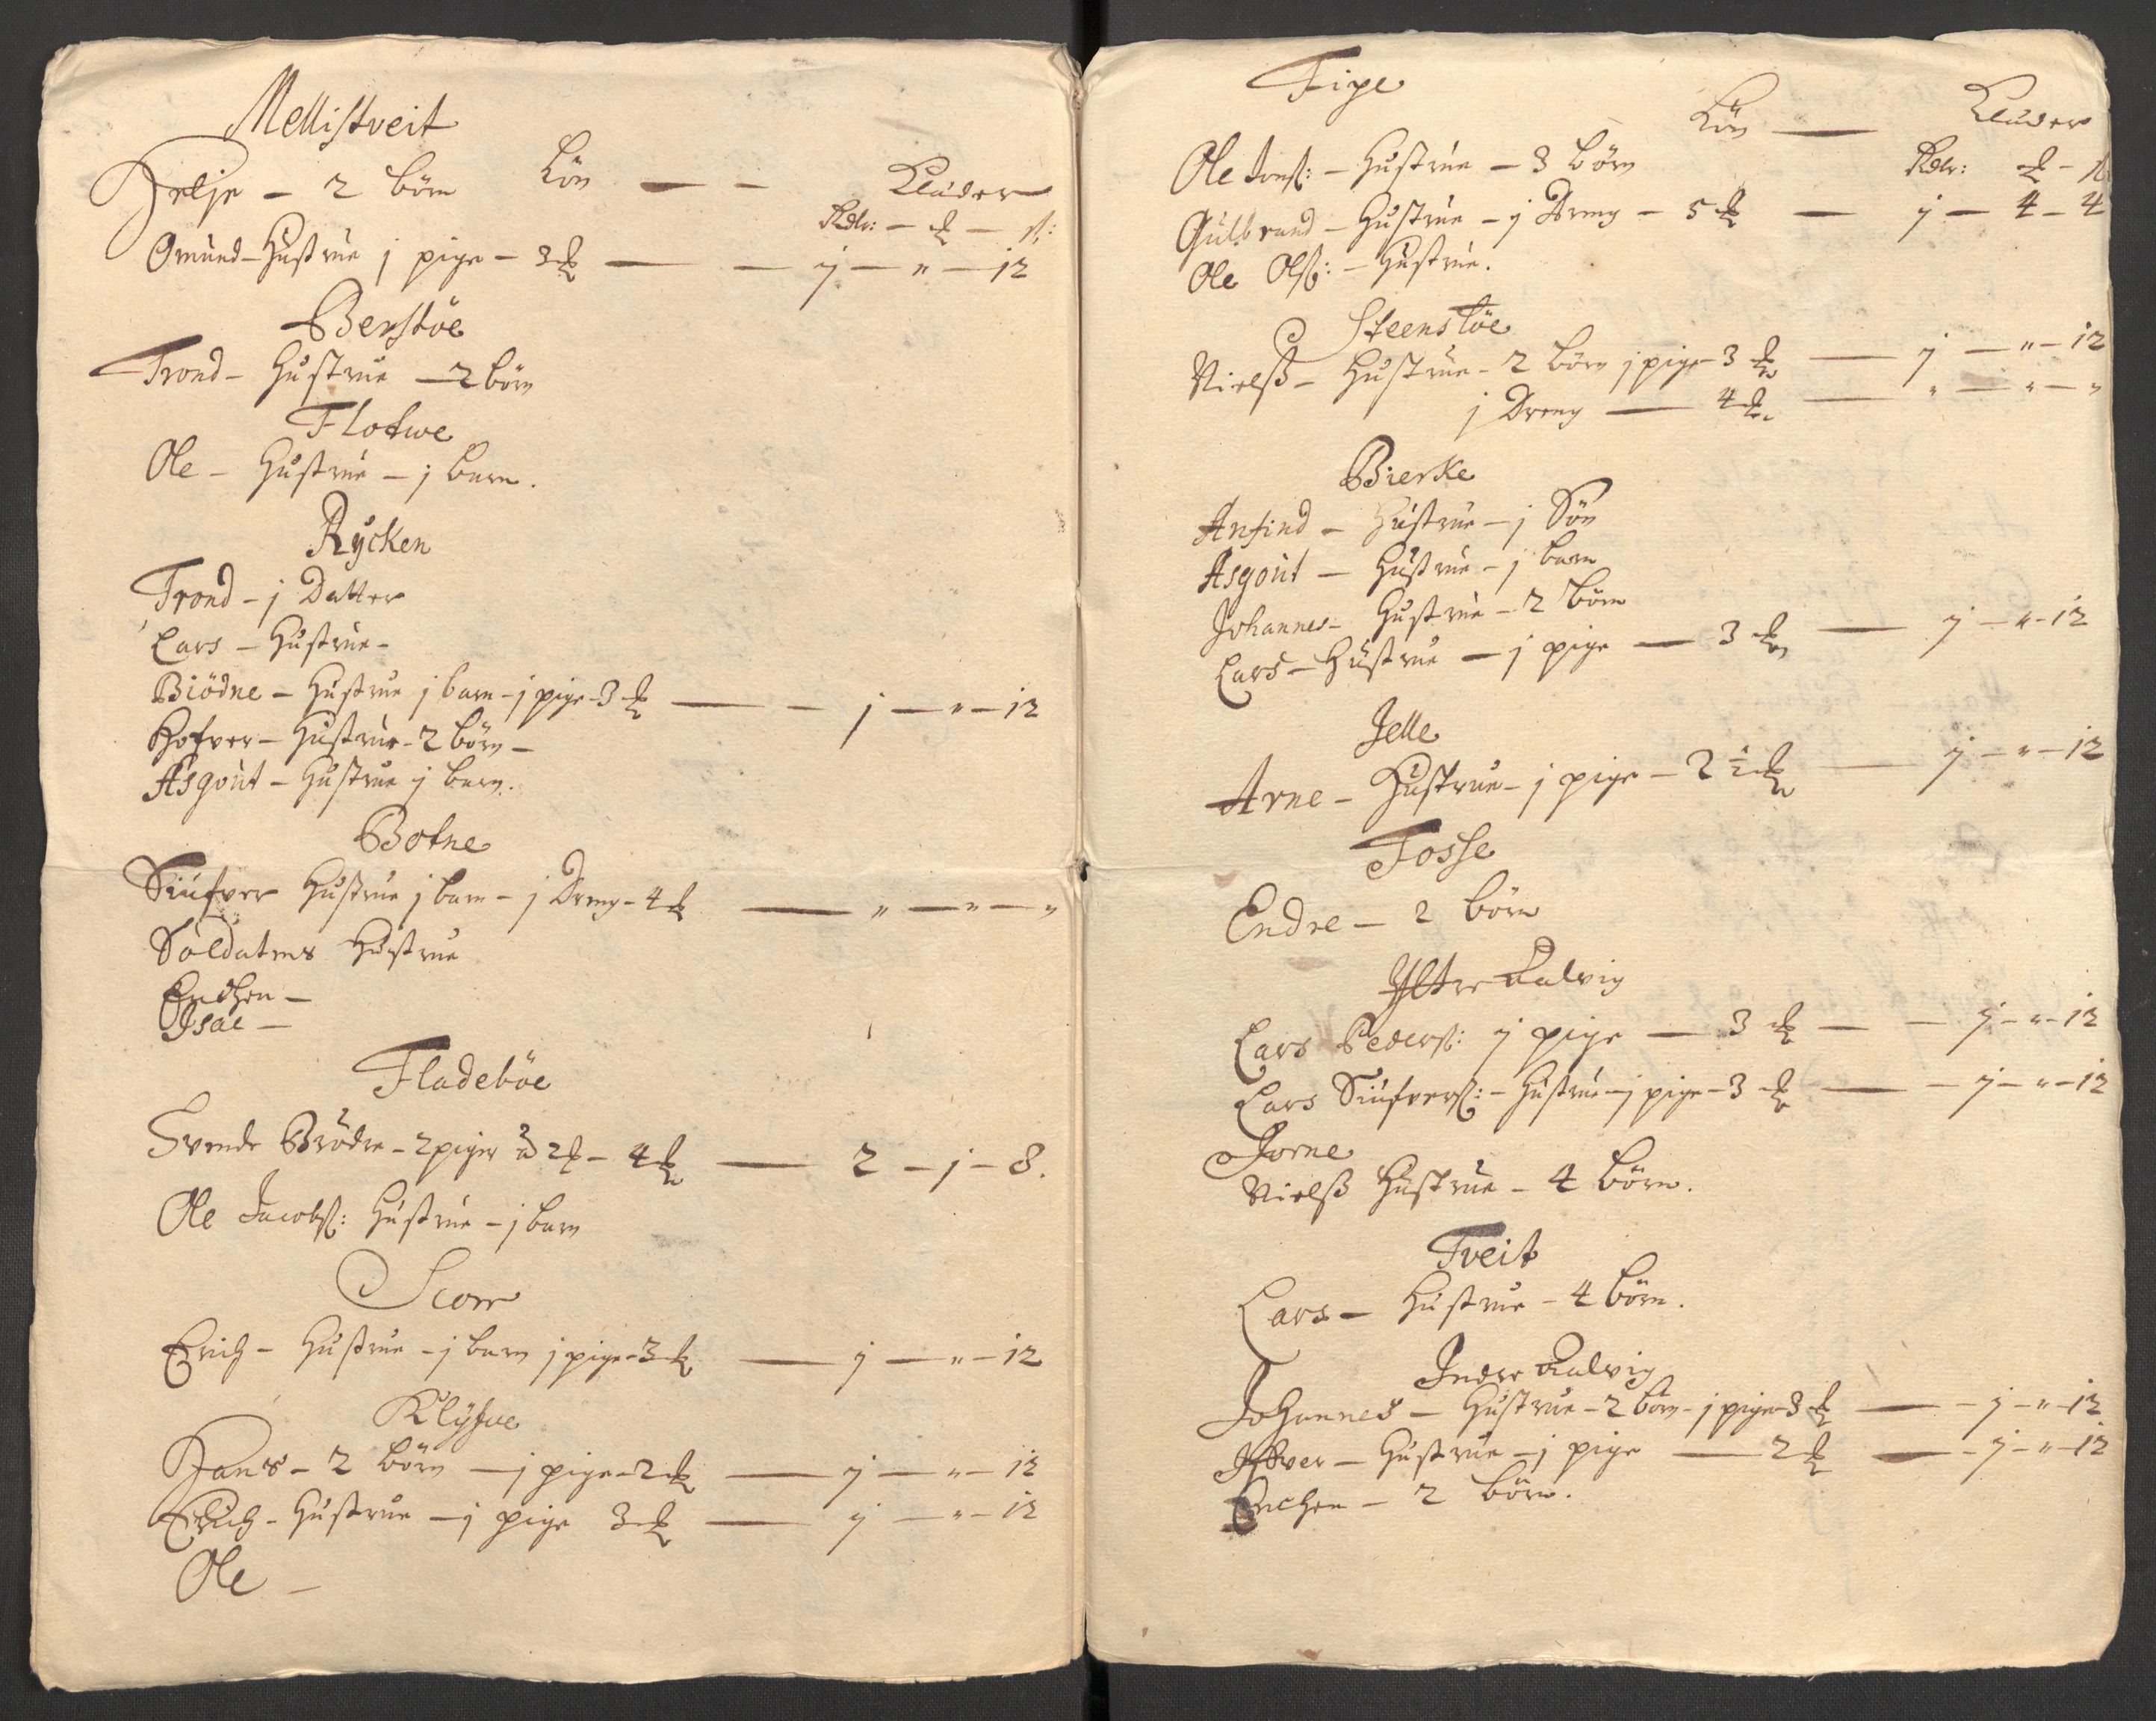 Mellistveit
Helje - 2 börn Lön — - Kleder
Rdlr: - ꝺ - ß:
Omund - Hustrue j pige - 3 ꝺ — - j — " — 12
Berstöe
Trond - Hustrue - 2 börn
Flotwe
Ole - Hustrue - j barn.
Rÿcken
Trond - j Datter
Lars - Hustrue -
Biödne - Hustrue j barn - j pige - 3 ꝺ — - j — " — 12
Hofver - Hustrue - 2 börn -
Asgout - Hustrue j barn.
Botne
Siufver Hustrue j barn - j Dreng - 4 ꝺ — " — " — "
Soldatens Hustrue
Enchen -
Isac -
Fladeböe
Svende Brödre - 2 piger à 2 ꝺ - 4 ꝺ — 2 - j - 8.
Ole Jacobß: Hustrue - j barn
Scorr
Erich - Hustrue - j barn j pige - 3 ꝺ — j — " — 12
Klÿfue
Hans - 2 börn - j pige - 2 ꝺ — j — " — 12
Erich - Hustrue - j pige 3 ꝺ — j — " — 12
Ole -
Fipe
Lön — Kleder
Ole Jonß: - Hustrue - 3 börn Rdlr: ꝺ - ß
Gulbrand - Hustrue - j Dreng - 5 ꝺ — j — 4 - 4
Ole Olß: - Hustrue.
Steenstöe
Nielß - Hustrue - 2 börn j pige - 3 ꝺ — j — " - 12
j Dreng — 4 ꝺ. — " — " — "
Bierke
Anfind - Hustrue - j Sön
Asgout - Hustrue - j barn
Johannes - Hustrue - 2 börn
Lars - Hustrue - j pige — 3 ꝺ — j - " - 12
Jelle
Arne - Hustrue - j pige - 2 ½ ꝺ — j - " - 12
Fosse
Endre - 2 börn
Ÿttre Aalvig
Lars Pederß: j pige — 3 ꝺ — - j - " - 12
Lars Siufverß: - Hustrue - j pige - 3 ꝺ — - j - " - 12
Jorne
Nielß Hustrue - 4 börn.
Tveit
Lars - Hustrue - 4 börn.
Indre Aalvig
Johannes - Hustrue - 2 börn - j pige - 3 ꝺ — - j - " - 12
Ifver - Hustrue - j pige — 2 ꝺ — - j - " - 12
Enchen - 2 börn.